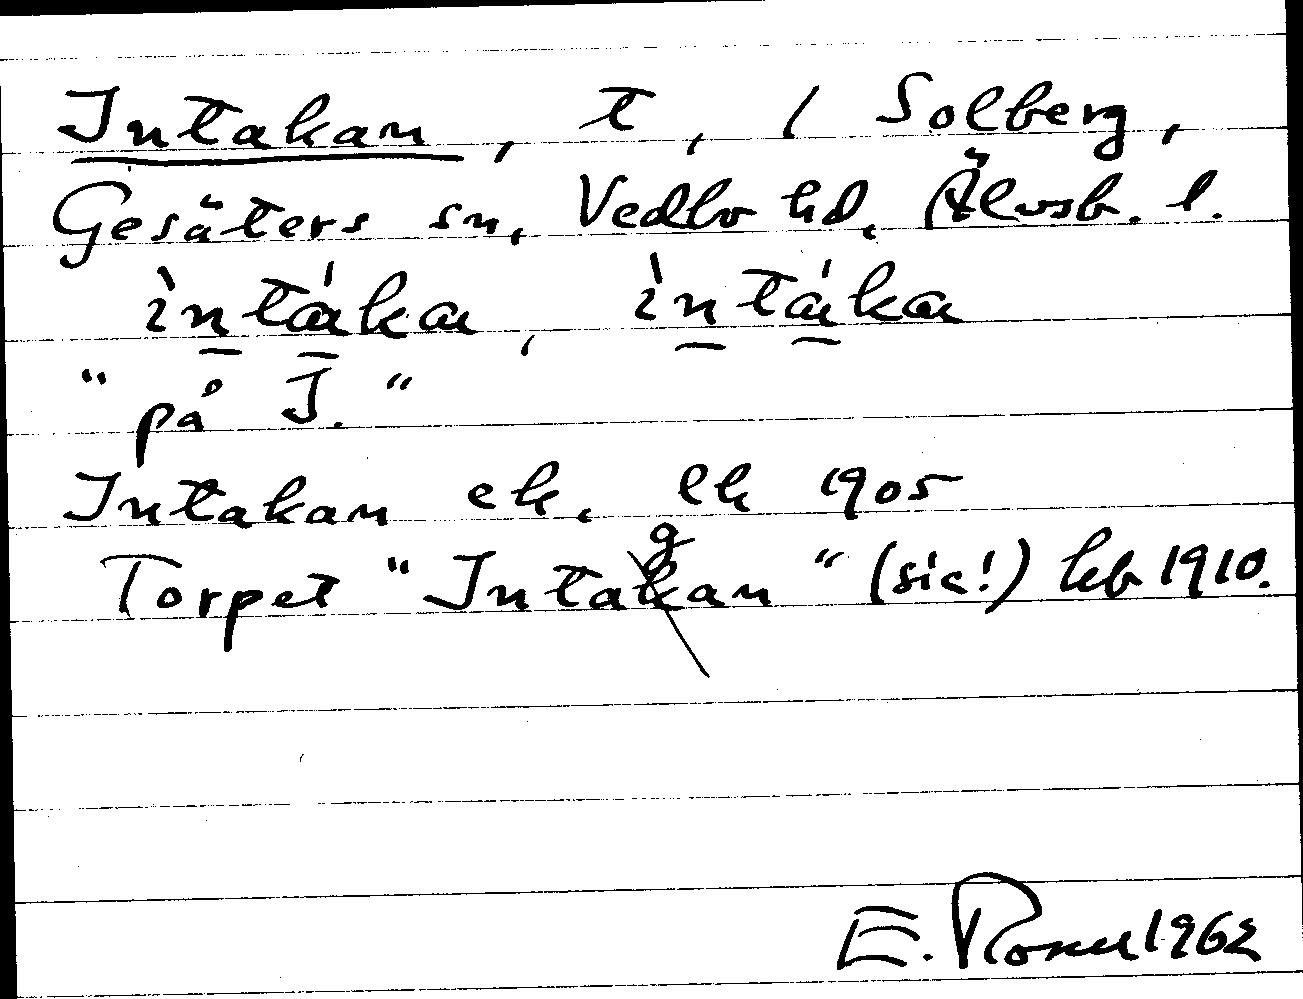 Intakan, t, / Solberg,
Gesäters sn, Vedbo hd, Älvsb. l.
ìntáka, ìntáka
"på I."
Intakan ek. ek 1905
Torpet "Intagan" (sic!) hb 1910.
E. Rosell 1962